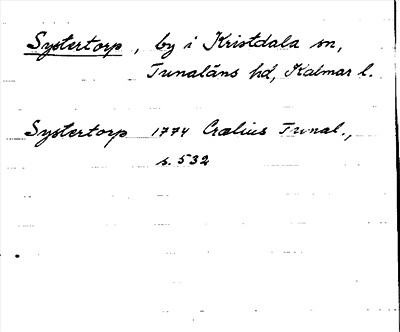 Systertorp, by i Kristdala sn,
Tunaläns hd, Kalmar l.
Systertorp 1774 Crælius Tunal.,
s. 532